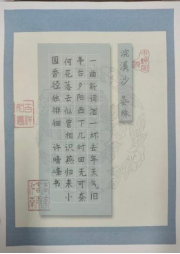 浣溪沙·晏殊
一曲新词酒一杯去年天气旧
亭台夕阳西下几时回无可奈
何花落去似曾相识燕归来小
园香径独徘徊 许 书